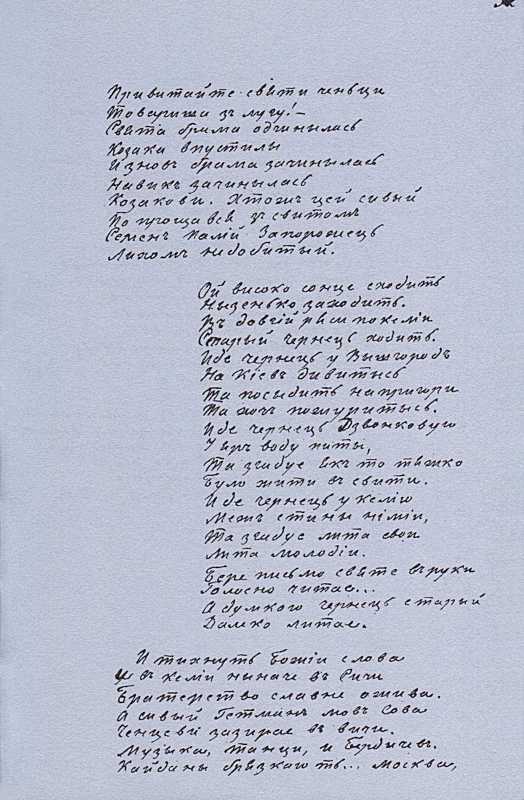 Привитайте святи ченьци
Товариша зъ лугу! —
Свята брама одчинылась
Козака впустилы
И зновъ брама зачинылась
Навикъ зачинылась
Козакови. Хто жъ цей сивый
Попрощався зъ свитомъ
Семенъ Палій Запорожець
Лихомъ недобитый.
Ой высоко сонце сходить
Нызенько заходить.
Въ довгій ряси по келіи
Старый чернець ходить.
Иде чернець у Вышгородъ
На Кіевъ дивитысь
Та посыдить на пригори
Та хочъ пожуритысь.
Иде чернець Дзвонковую
У яръ воду пыты,
Та згадує якъ то тяжко
Було жити въ свити.
Иде чернець у келію
Межъ стины німіи,
Та згадує лита свои
Лита молодіи.
Бере письмо святе въ руки
Голосно читає...
А думкою чернець старый
Далеко литає.
И тихнуть Божіи слова
И въ келіи ныначе въ Сичи
Братерство славне ожива.
А сивый Гетманъ мовъ сова
Ченцеви зазирає въ вичи.
Музыка, танци, и Бердычев.
Кайданы брязкають... Москва,